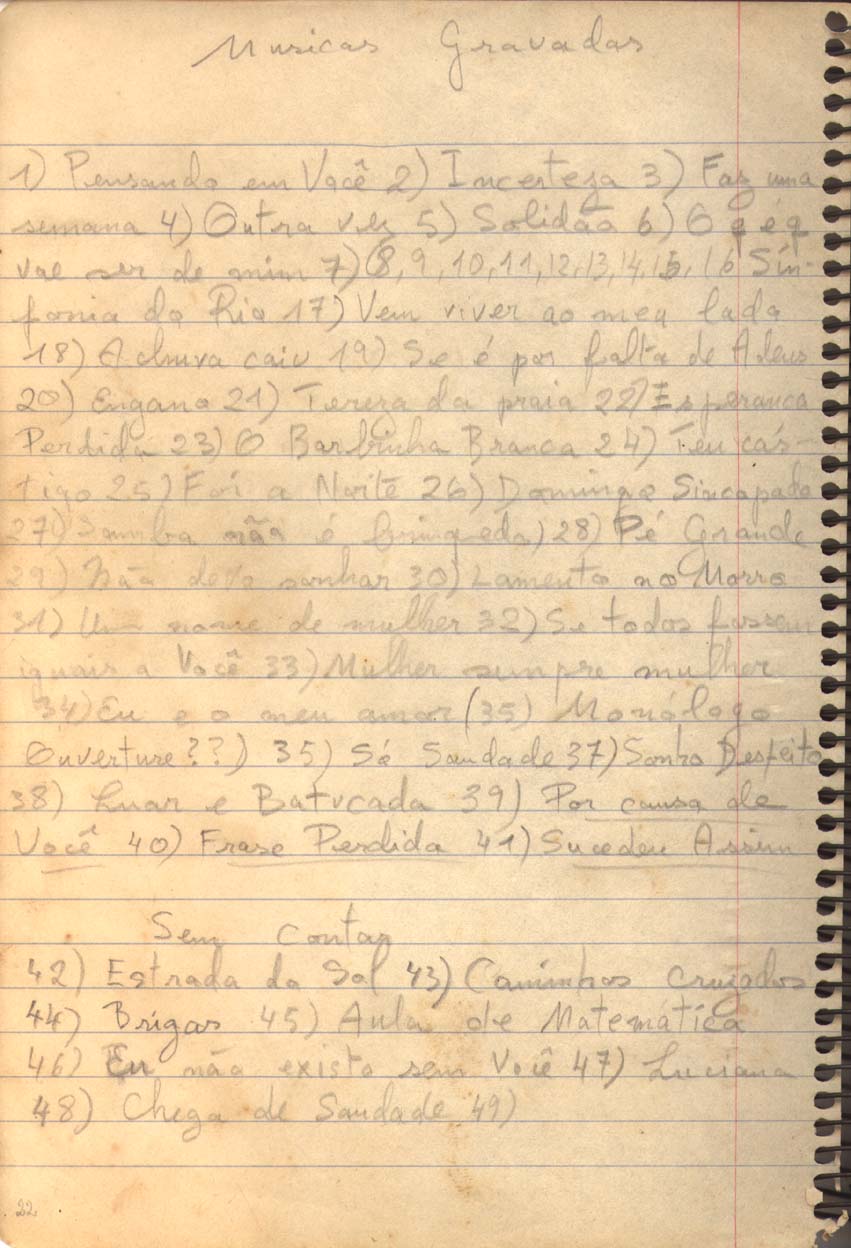 Musicas Gravadas
1) Pensando em Você 2) Incerteza 3) Faz uma
semana 4) Outra vez 5) Solidão 6) O q é q
vae ser de mim 7) 8, 9, 10, 11, 12, 13, 14, 15, 16 Sin-
fonia do Rio 17) Vem viver ao meu lado
18) A chuva caiu 19) Se é por falta de Adeus
20) Engano 21) Tereza da praia 22) Esperanca
Perdida 23) O Barbinha Branca 24) Teu cás-
tigo 25) Foi a Noite 26) Domingo Sincopado
27) Samba não é brinquedo) 28) Pé Grande
29) Não devo sonhar 30) Lamento no Morro
31) Um nome de mulher 32) Se todos fossem
iguais a Você 33) Mulher sempre mulher
34) Eu e o meu amor (35) Monólogo
Ouverture??) 35) Só Saudade 37) Sonho Desfeito
38) Luar e Batucada 39) Por causa de
Você 40) Frase Perdida 41) Sucedeu Assim
Sem contar
42) Estrada do Sol 43) Caminhos cruzados
44) Brigas 45) Aula de Matemática
46) Eu não existo sem Você 47) Luciana
48) Chega de Saudade 49)
22